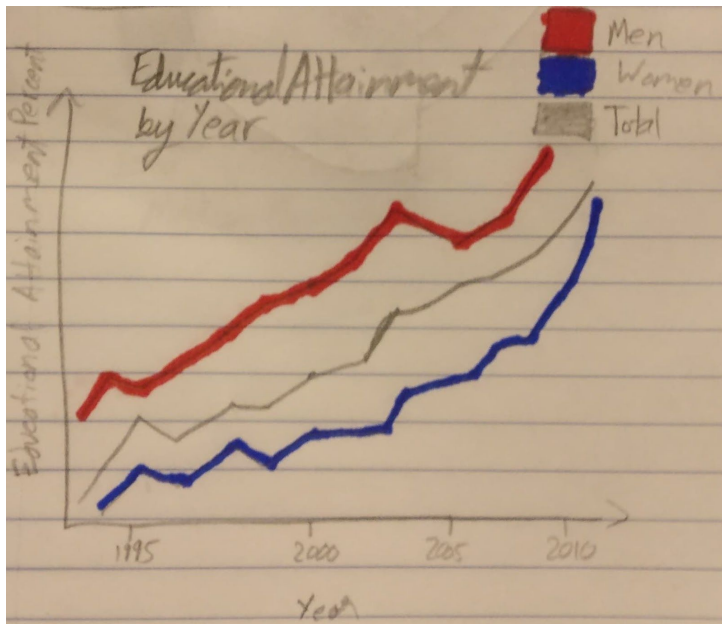 Educational Attainment
by Year
Men
Women
Total
Educational Attainment Percent
1995
2000
2005
2010
Year